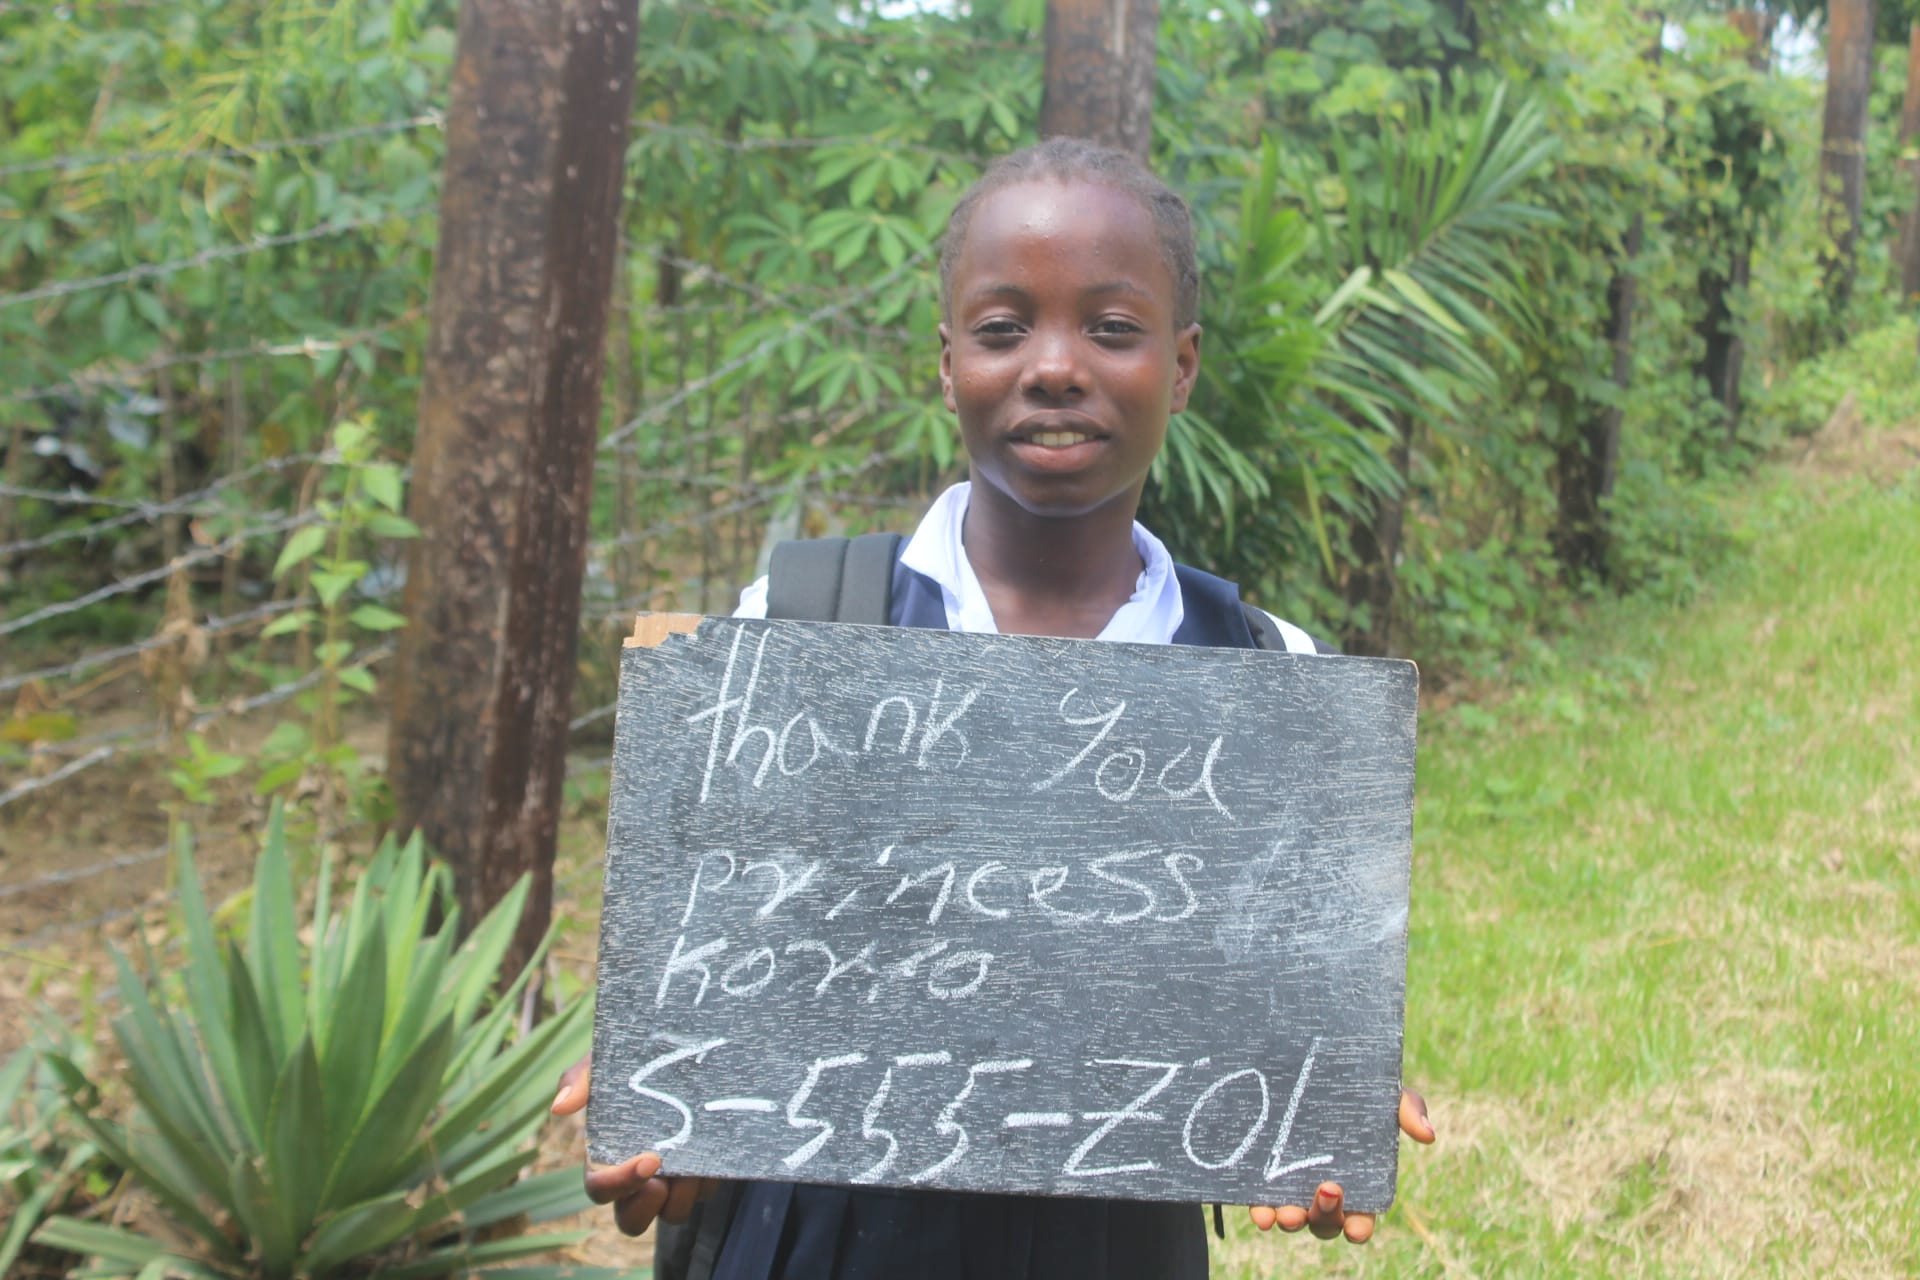 thank you
princess
korto
S-555-ZOL